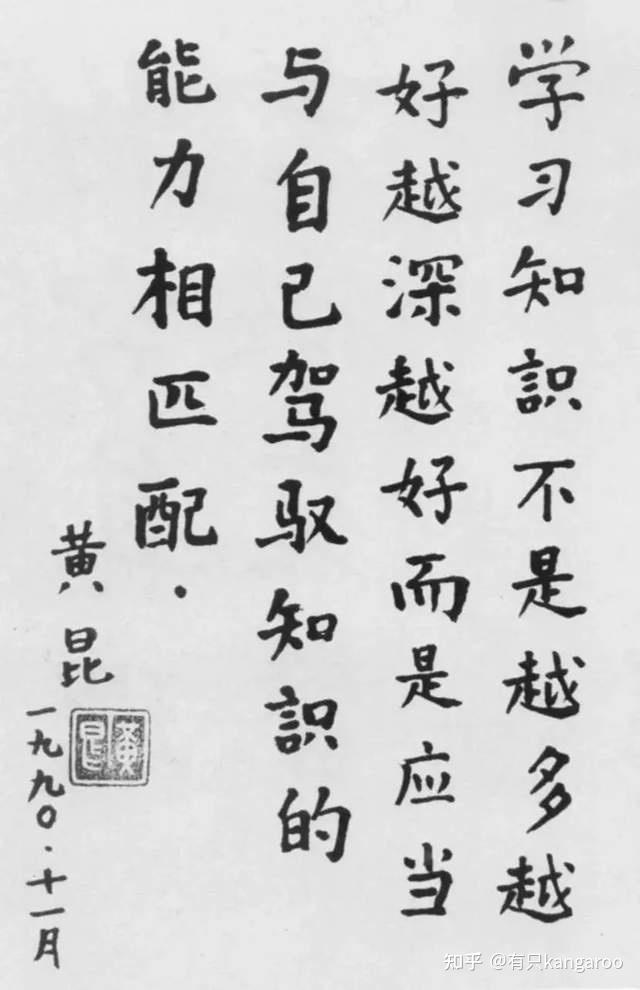 学习知識不是越多越
好越深越好而是应当
与自己驾驭知識的
能力相匹配.
黄昆
黄昆
一九九〇.十一月
知乎 @有只kangaroo